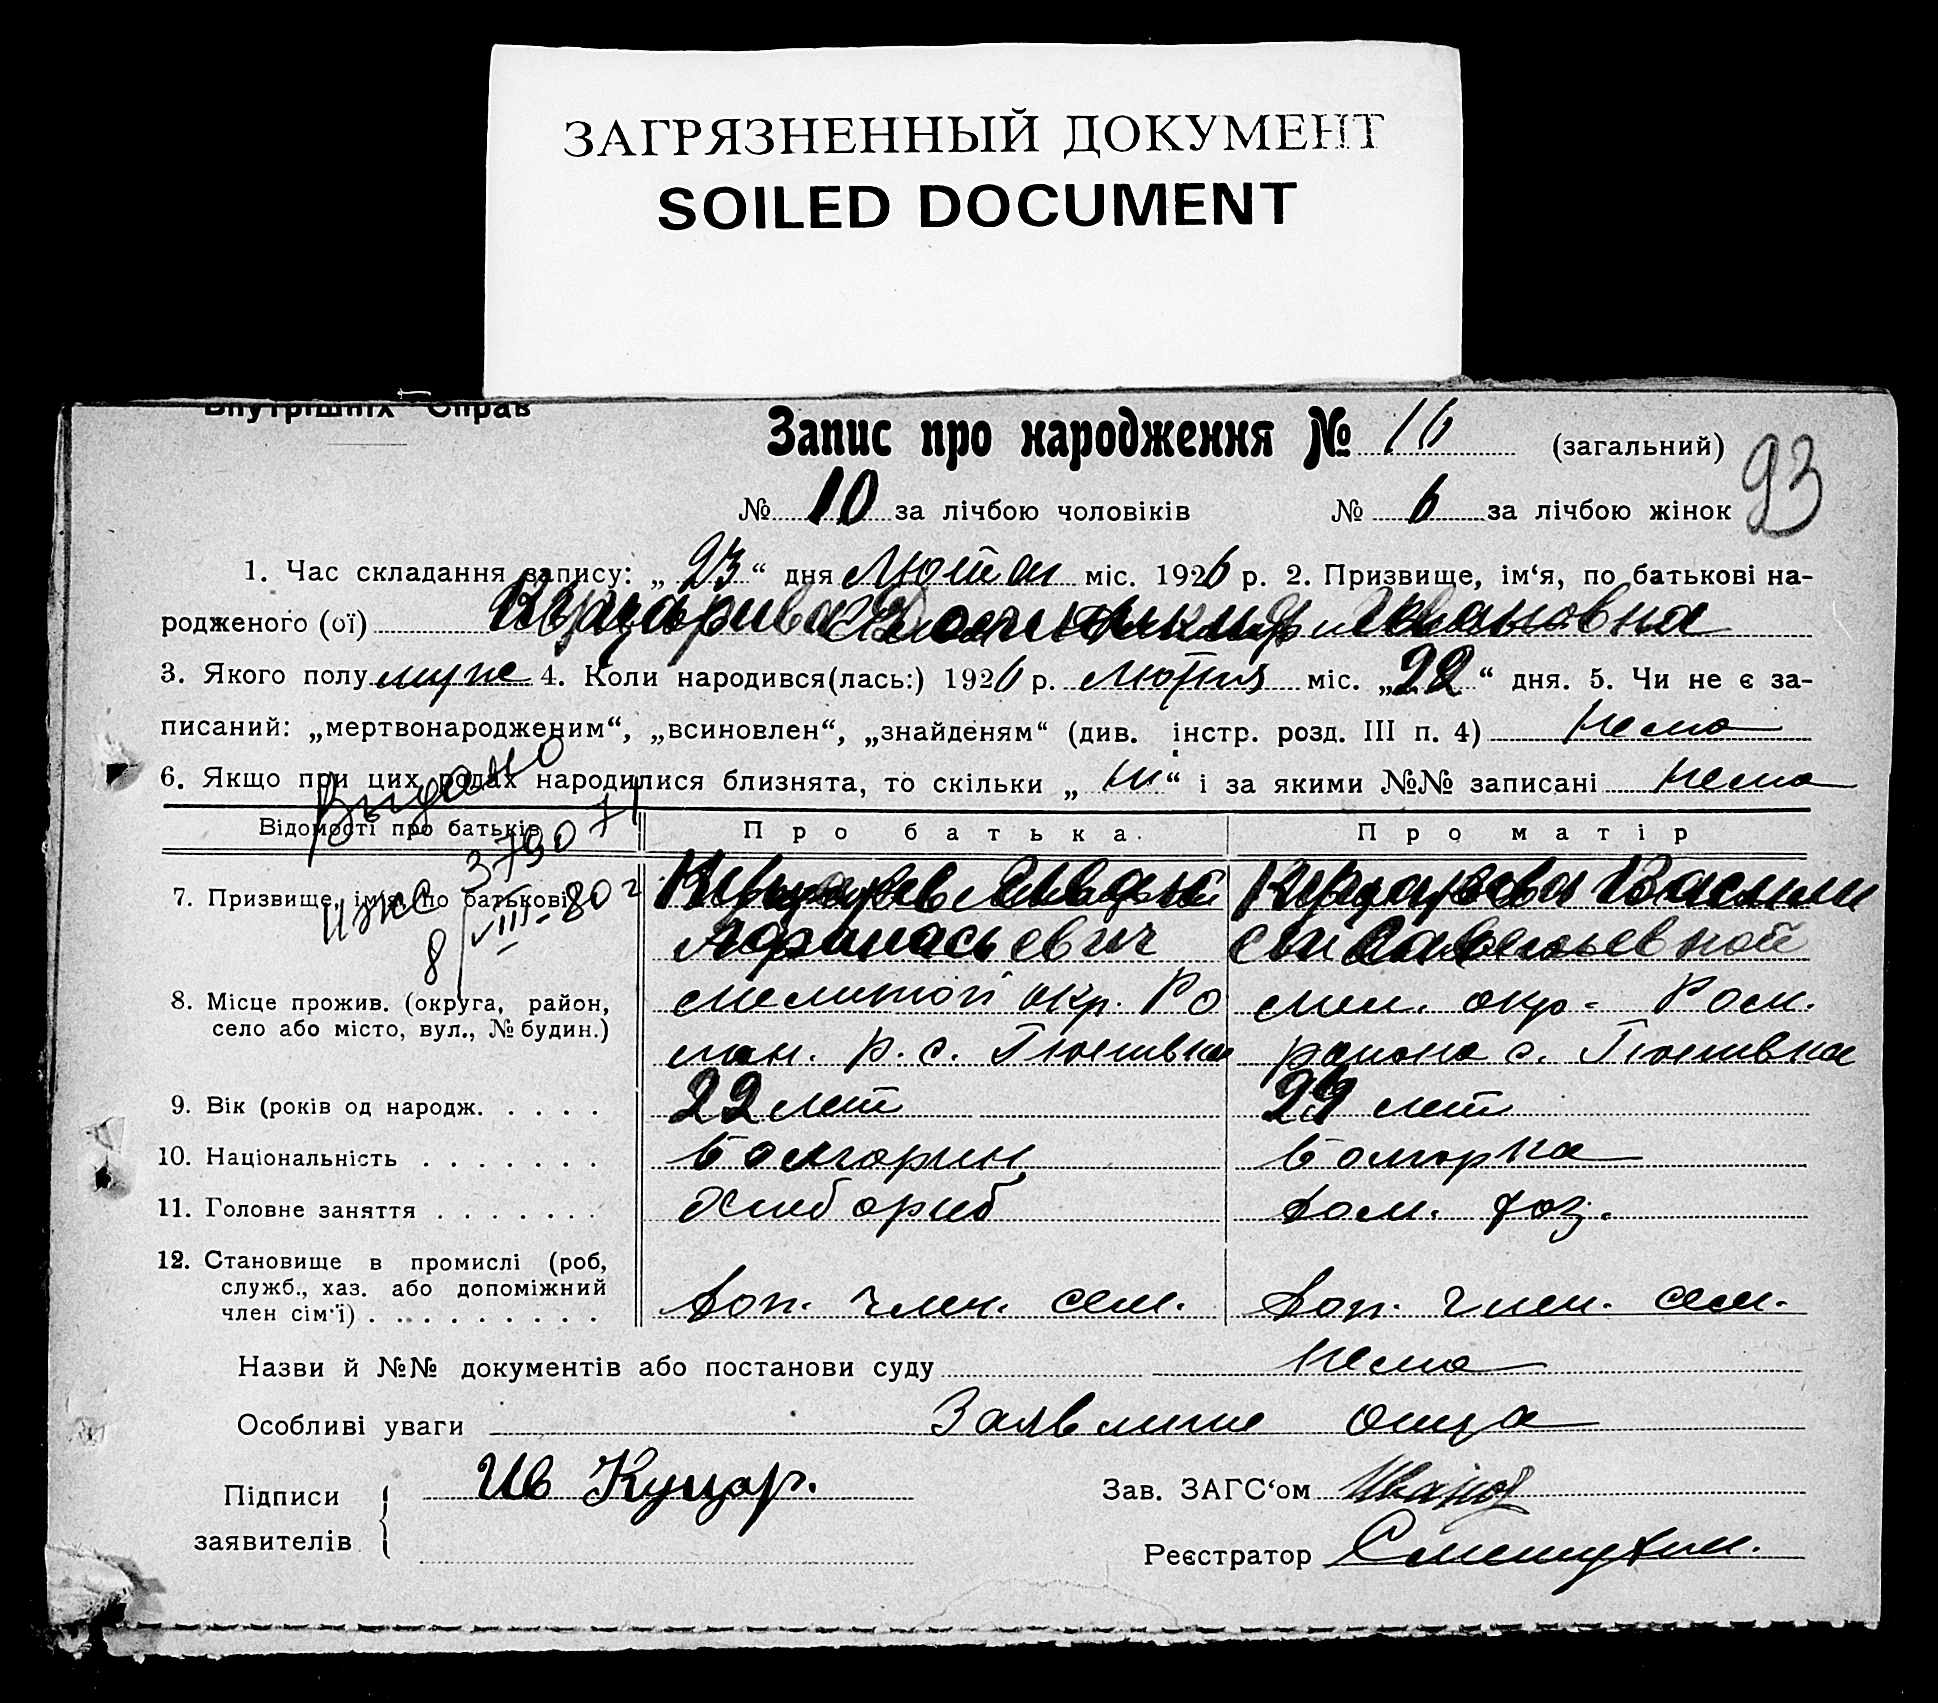 ЗАГРЯЗНЕННЫЙ ДОКУМЕНТ
SOILED DOCUMENT
Внутрішніх Справ
Запис про народження № 16 (загальний)
93
№ 10 за лічбою чоловіків № 6 за лічбою жінок
1. Час складання запису: „ 23 “ дня Лютня міс. 1926 р. 2. Призвище, ім‘я, по батькові на-
родженого (ої) Ивановна
3. Якого полу муже 4. Коли народився(лась:) 1926 р. лютня міс. „22“ дня. 5. Чи не є за-
писаний: „мертвонародженим“, „всиновлен“, „знайденям“ (див. інстр. розд. III п. 4) нема
6. Якщо при цих родах народилися близнята, то скільки „ ни “ і за якими №№ записані нема
Выдано
379071
8/VIII-80 г
Відомості про батьків Про батька. Про матір
7. Призвище, ім‘я, по батькові Иван Васили
Афанасьевич
8. Місце прожив. (округа, район, мелитой окр. Ро мел. окр. Ром.
село або місто, вул., № будин.) ман. р. с. Гюневка района с. Гюневка
9. Вік (років од народж. . . . . 22 лет лет
10. Національність . . . . . . . болгарин болгорка
11. Головне заняття . . . . . . . хлибориб дом. хоз.
12. Становище в промислі (роб, 
служб., хаз. або допоміжний
член сім‘ї) . . . . . . . . . . доп. член. сем. доп. член. сем.
Назви й №№ документів або постанови суду нема
Особливі уваги Заявление отца
Підписи Ив Куцар.
заявителів
Зав. ЗАГС‘ом Іванов
Реєстратор